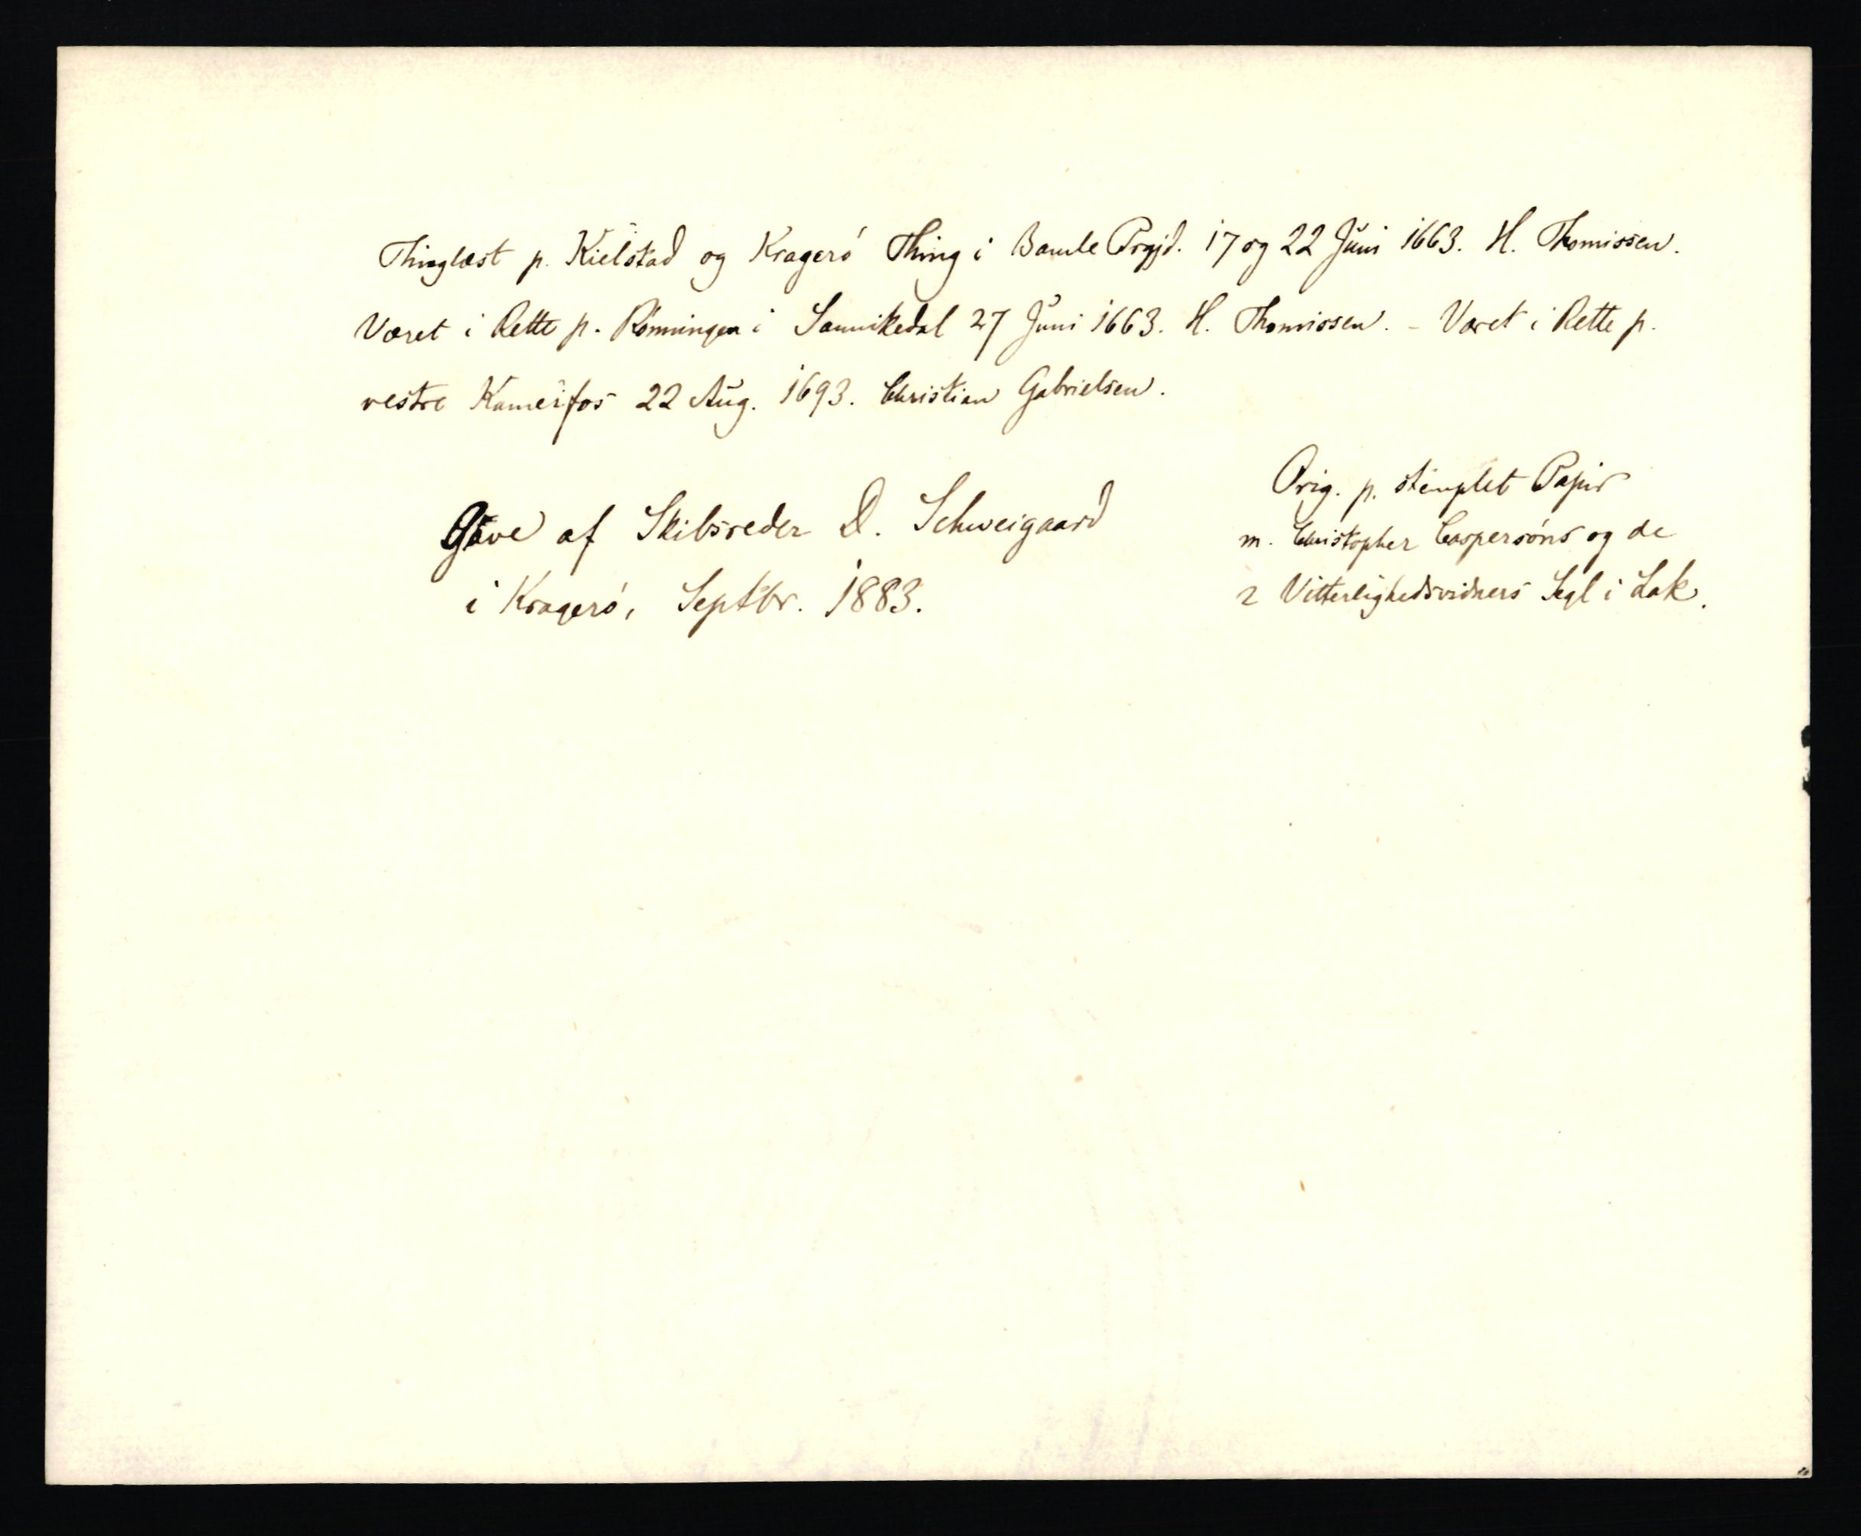 Thinglæst p. Kielstad og Kragerö Thing i Bamle Prgjd. 17 og 22 Juni 1663. H. Thomissen.
Været i Rette p. Rönningen i Sannikedal 27 Juni 1663. H. Thomissen. – Været i Rette p.
vestre Kameifos 22 Aug. 1693. Christian Gabrielsen.
Gave af Skibsreder D. Schweigaard
i Kragerö, Septbr. 1883.
Orig. p. stemplet Papir
m. Christopher Caspersöns og de
2 Vitterlighedsvidners Segl i Lak.